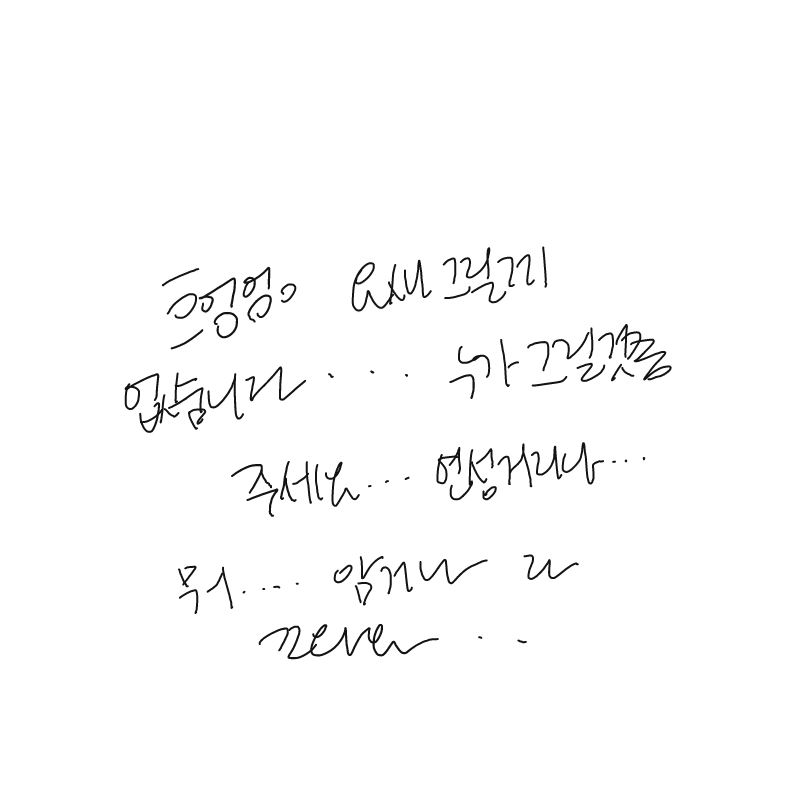 흐엉엉。 요새 그릴게
없습니다... 누가 그릴것좀
주세요... 연성거리나...
뭐.... 암거나 다